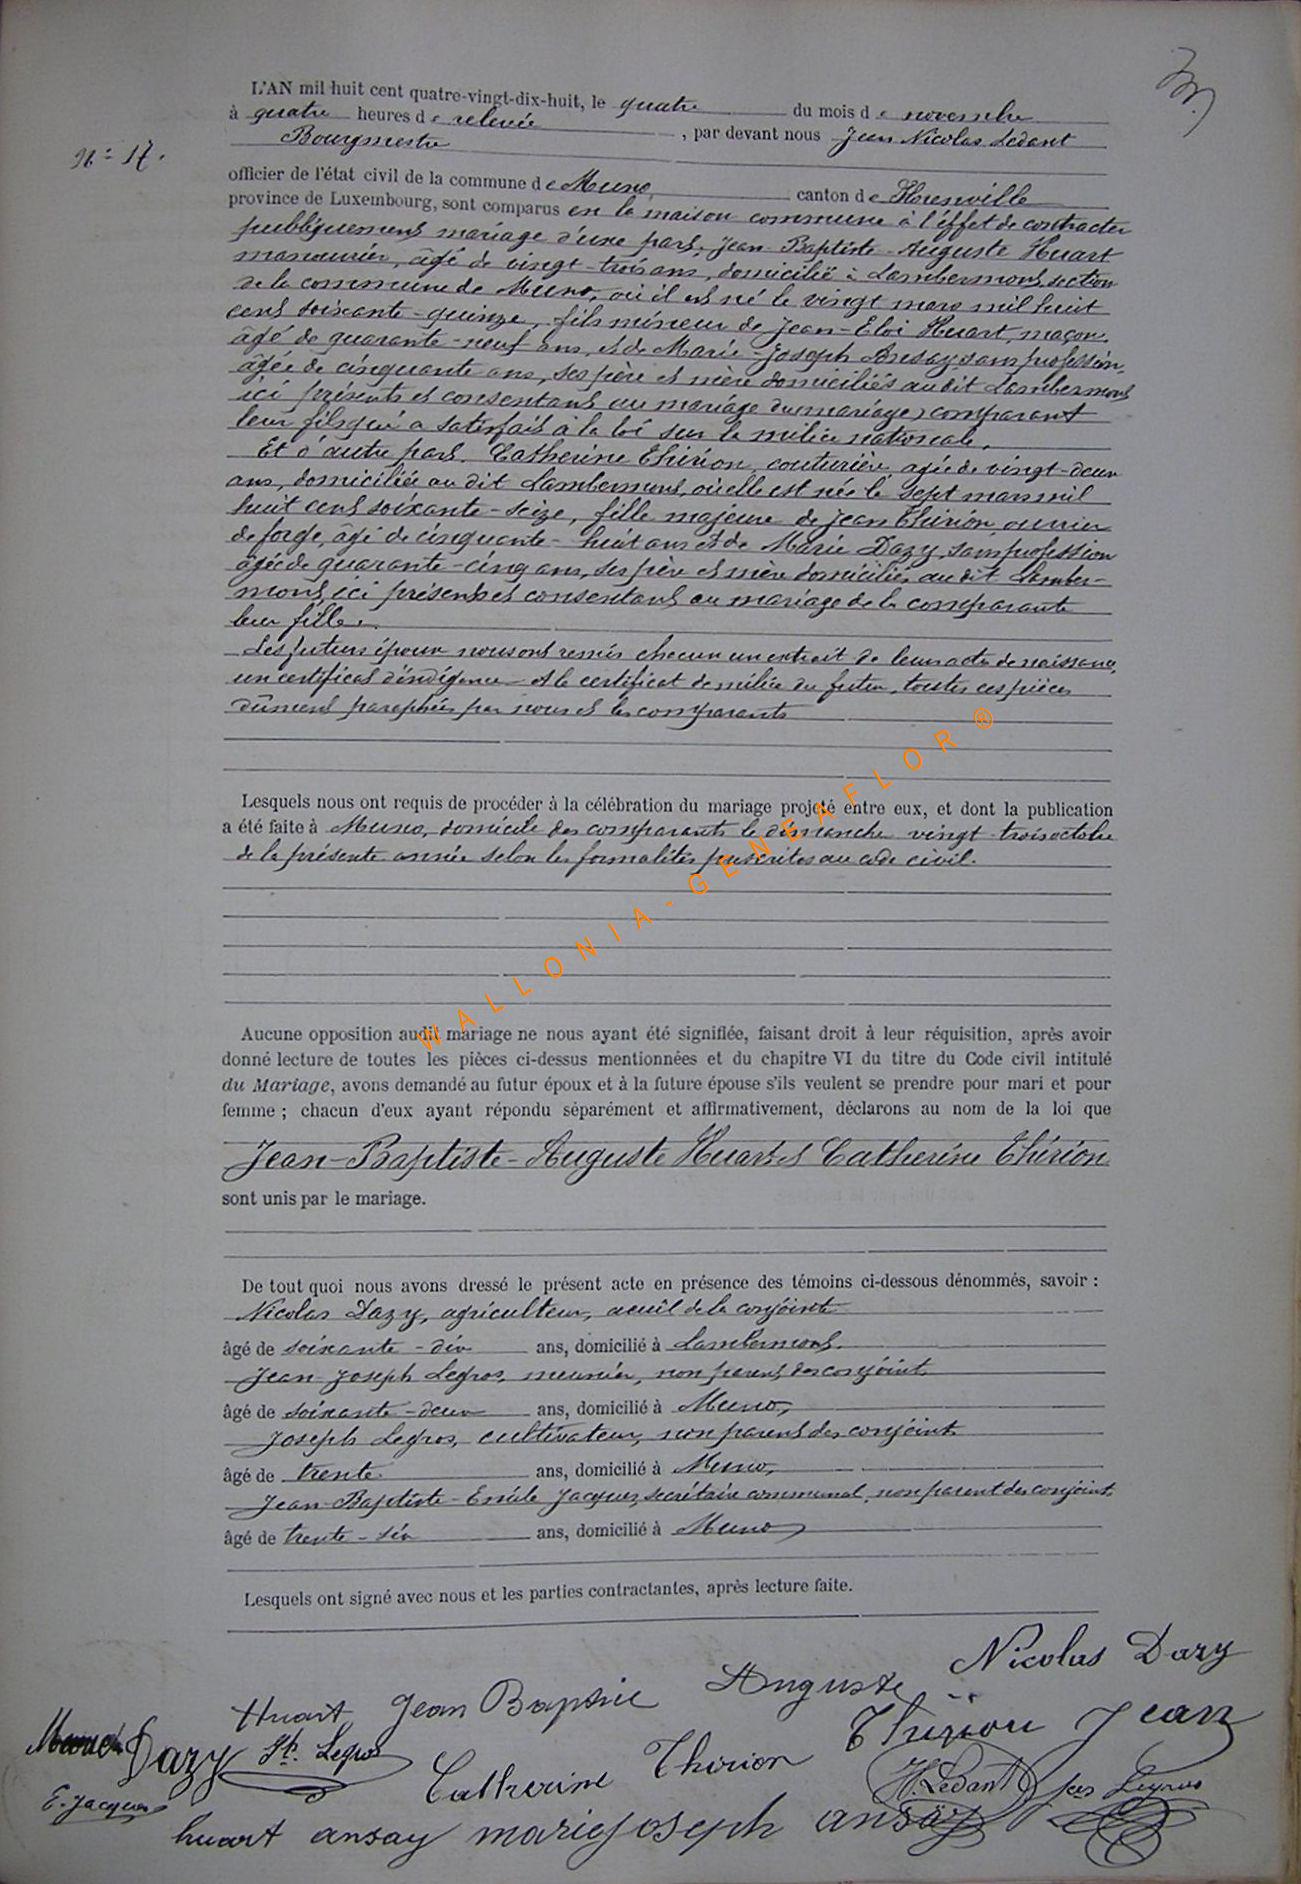 L'AN mil huit cent quatre-vingt-dix-huit, le quatre du mois de novembre
à quatre heures de relevée , par devant nous Jean Nicolas Ledant
N° 17.
Bourgmestre
officier de l'état civil de la commune de Muno canton de Florenville
province de Luxembourg, sont comparus en la maison commune à l'effet de contracter
publiquement mariage d'une part, Jean-Baptiste-Auguste Huart
manouvrier, âgé de vingt-trois ans, domicilié à Lambermont, section
de la commune de Muno, où il est né le vingt mars mil huit
cent soixante-quinze, fils mineur de Jean-Eloi Huart, maçon,
âgé de quarante-neuf ans, et de Marie-Joseph Ansay, sans profession,
âgée de cinquante ans, ses père et mère domiciliés au dit Lambermont
ici présents et consentant au mariage du mariage comparant
leur fils qui a satisfait à la loi sur la milice nationale.
Et d'autre part. Catherine Thirion, couturière, agée de vingt-deux
ans, domiciliée au dit Lambermont, où elle est née le sept mars mil
huit cent soixante-seize, fille majeure de Jean Thirion, ouvrier
de forge, âgé de cinquante-huit ans et de Marie Dazy, sans profession
âgée de quarante-cinq ans, ses père et mère domiciliés au dit Lamber-
mont, ici présents et consentant au mariage de la comparante
leur fille.
Les futurs époux nous ont remis chacun un extrait de leurs acte de naissance,
un certificat d'indigence et le certificat de milice du futur, toutes ces pièces
dûment paraphées par nous et les comparants
Lesquels nous ont requis de procéder à la célébration du mariage projeté entre eux, et dont la publication
a été faite à Muno, domicile des comparants le dimanche vingt-trois octobre
de la présente année selon les formalités prescrites au code civil.
WALLONIA-GENEAFLOR®
Aucune opposition audit mariage ne nous ayant été signifiée, faisant droit à leur réquisition, après avoir
donné lecture de toutes les pièces ci-dessus mentionnées et du chapitre VI du titre du Code civil intitulé
du Mariage, avons demandé au futur époux et à la future épouse s'ils veulent se prendre pour mari et pour
femme ; chacun d'eux ayant répondu séparément et affirmativement, déclarons au nom de la loi que
Jean-Baptiste-Auguste Huart et Catherine Thirion
sont unis par le mariage.
De tout quoi nous avons dressé le présent acte en présence des témoins ci-dessous dénommés, savoir :
Nicolas Dazy, agriculteur, aeuil de la conjointe
âgé de soixante-dix ans, domicilié à Lambermont.
Jean-Joseph Legros, meunier, non parent des conjoints
âgé de soixante-deux ans, domicilié à Muno,
Joseph Legros, cultivateur, non parent des conjoints
âgé de trente ans, domicilié à Muno,
Jean-Baptiste-Emile Jacques, secrétaire communal, non parent des conjoints,
âgé de trente-six ans, domicilié à Muno
Lesquels ont signé avec nous et les parties contractantes, après lecture faite.
Nicolas Dazy
Huart Jean Baptiste Auguste
Dazy Jh. Legros Catherine Thirion Thirion Jean
E. Jacques Ledant Legros
huart ansay marie joseph ansay